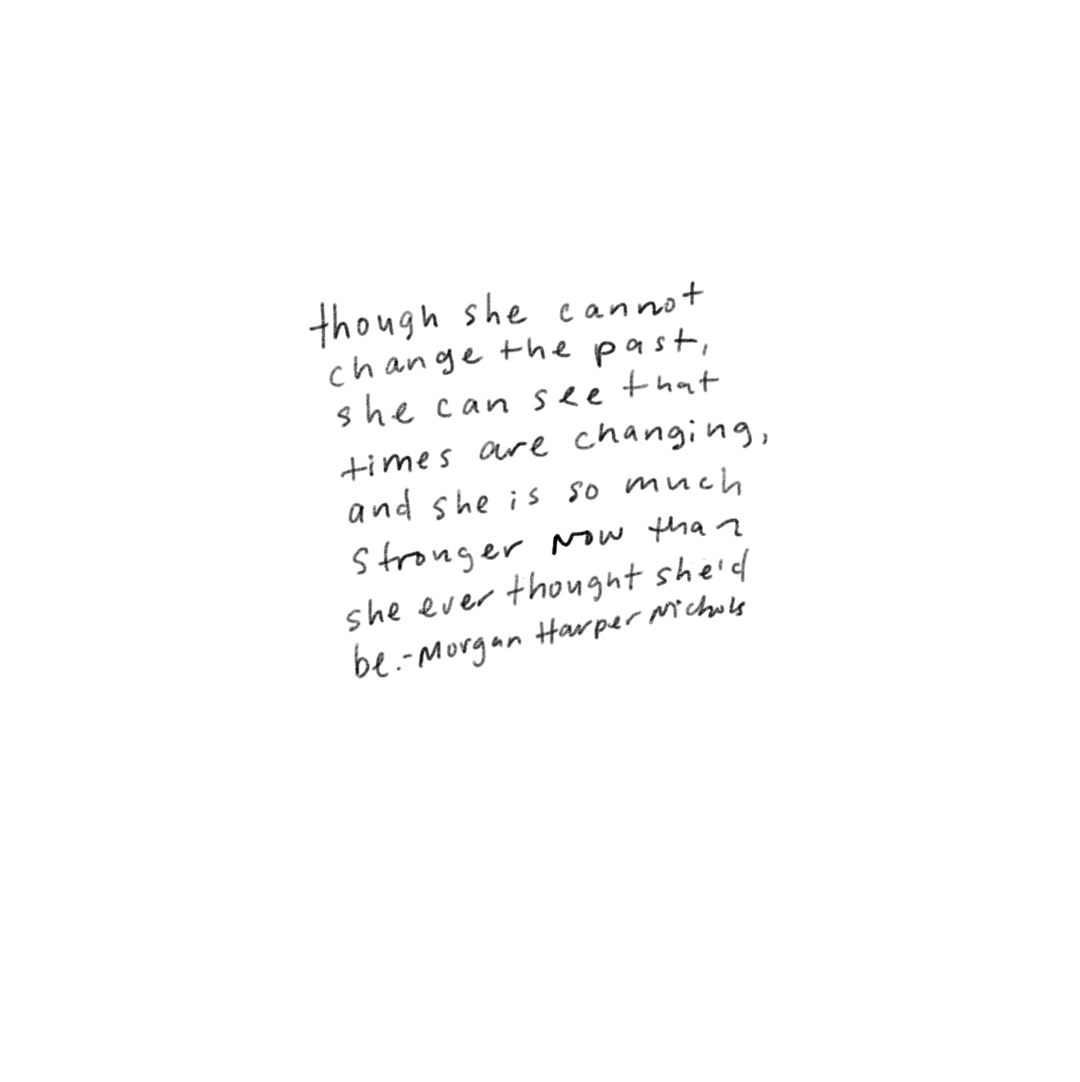 though she cannot
change the past,
she can see that
times are changing,
and she is so much
stronger now than
she ever thought she'd
be.-Morgan Harper Nichols